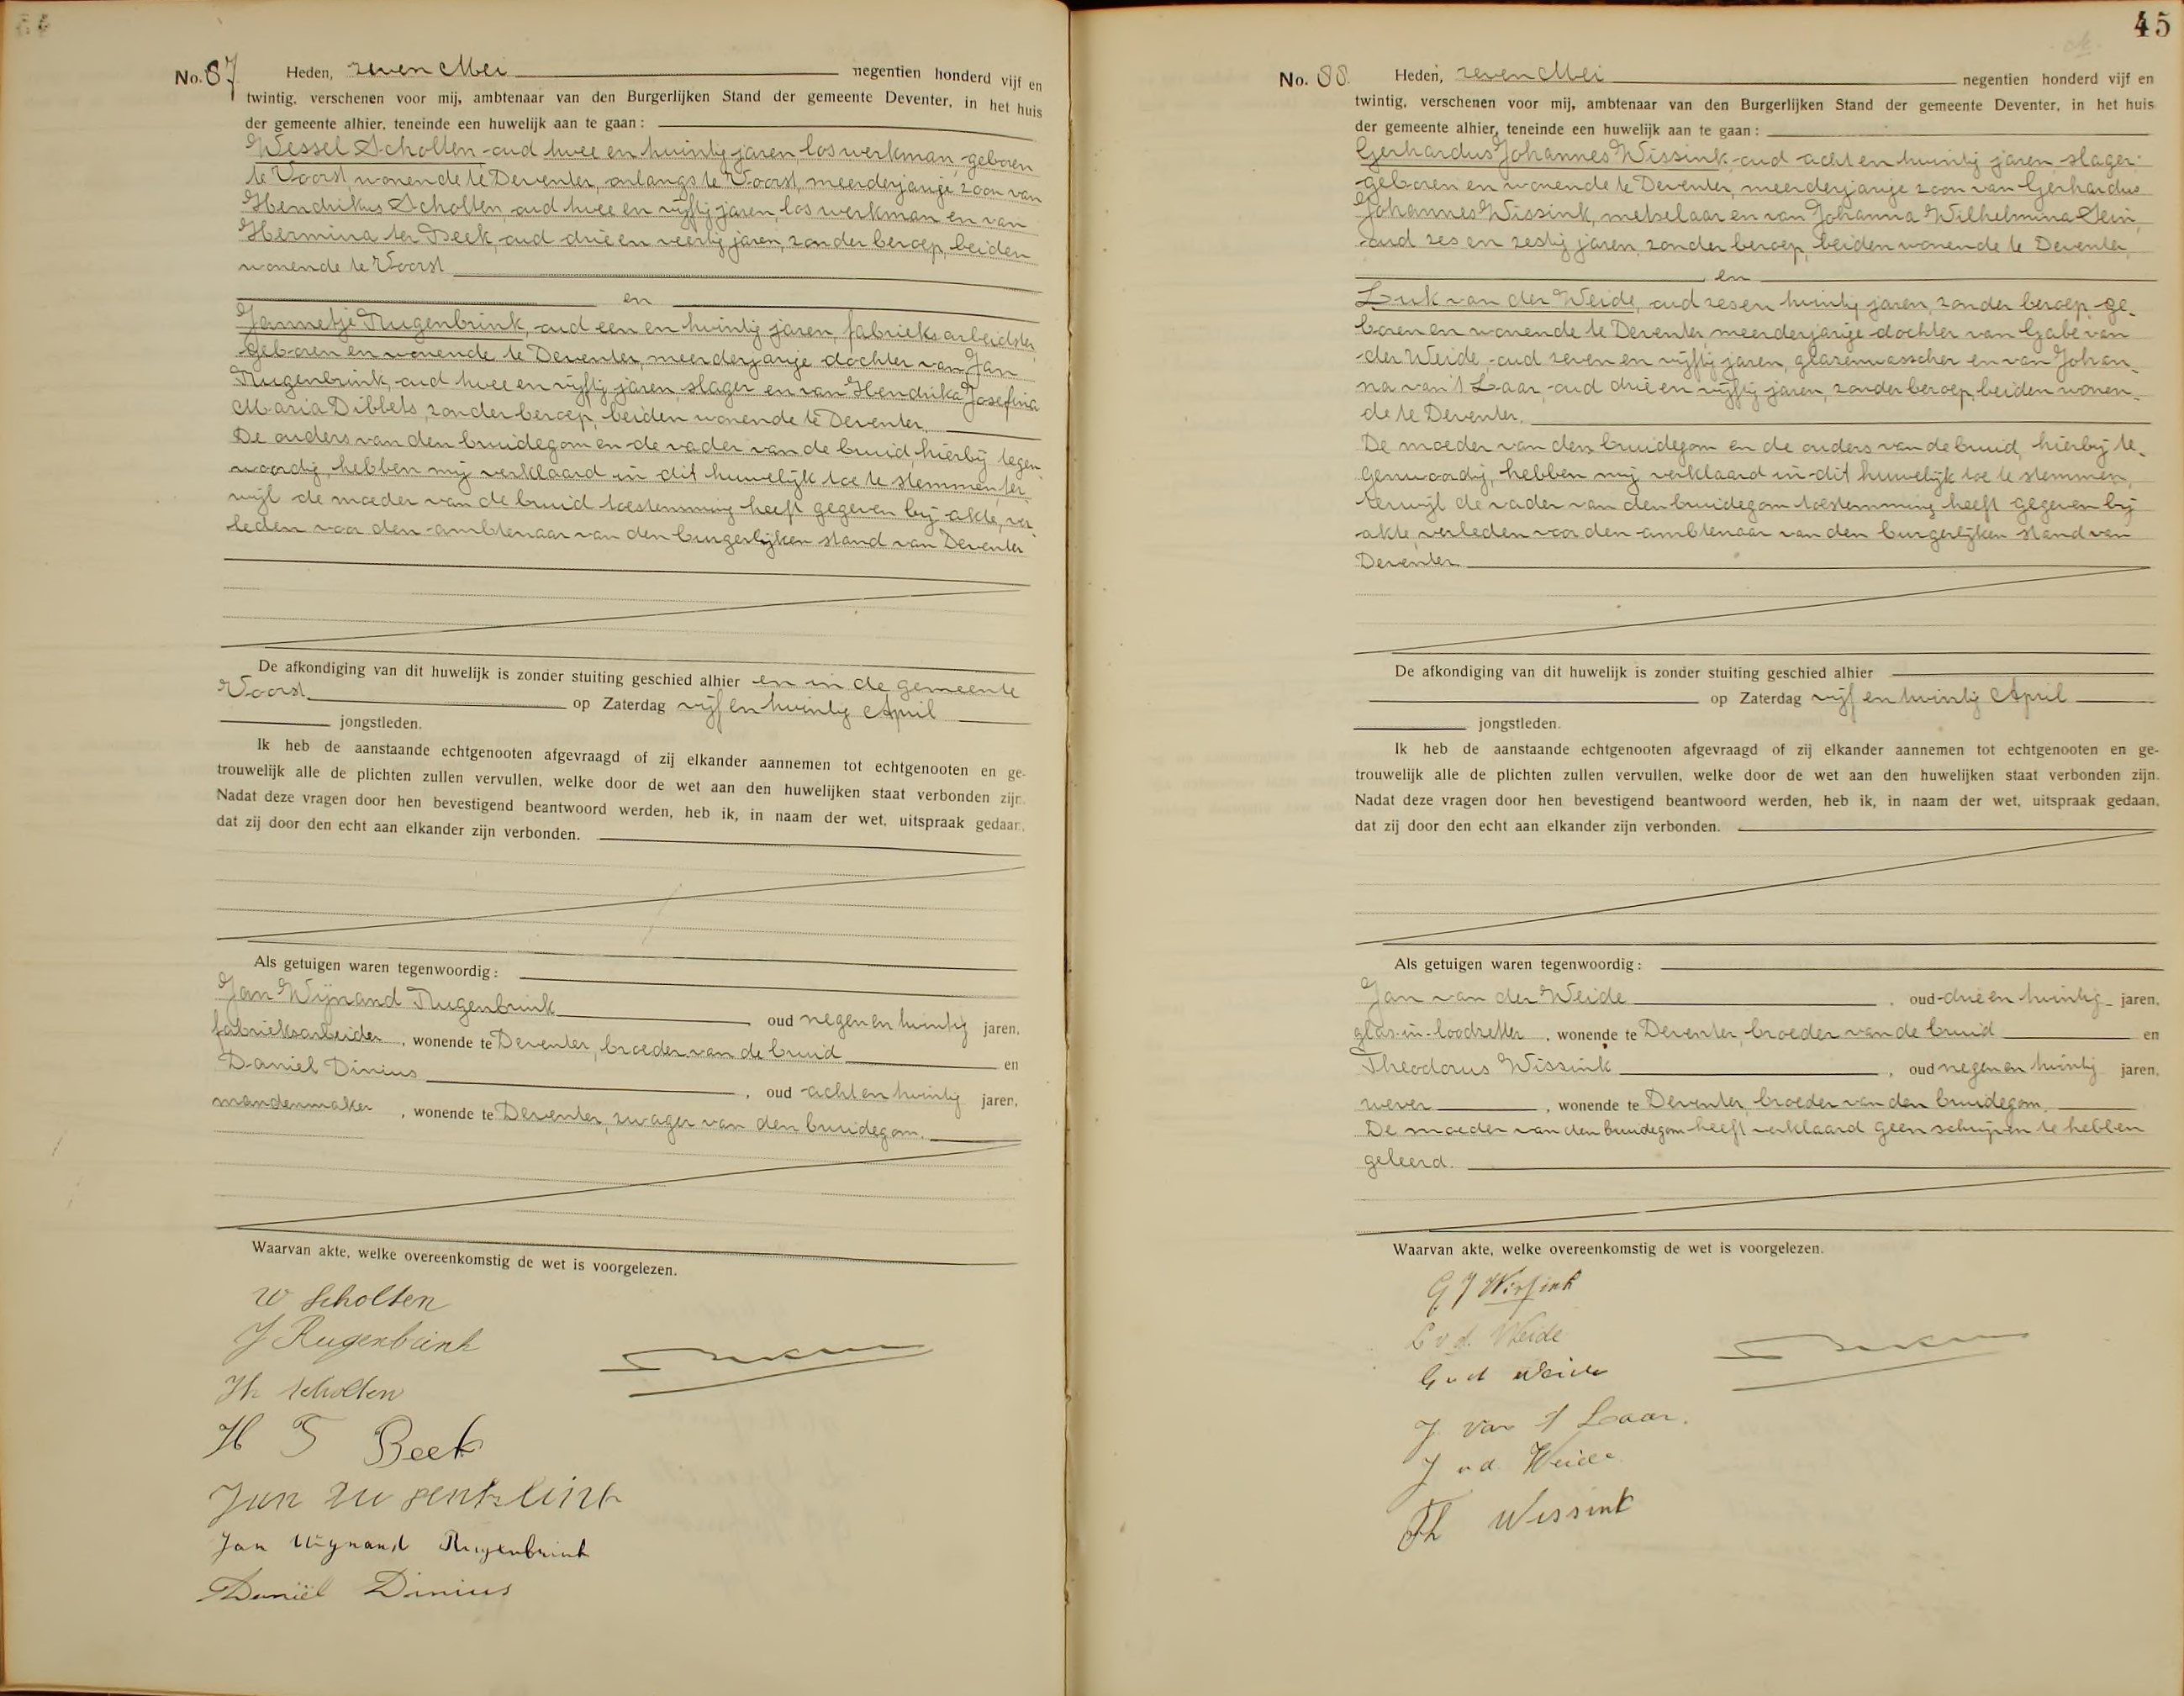 No. 87 Heden, zeven Mei negentien honderd vijf en
twintig, verschenen voor mij, ambtenaar van den Burgerlijken Stand der gemeente Deventer, in het huis
der gemeente alhier, teneinde een huwelijk aan te gaan:
Wessel Scholten, oud twee en twintig jaren, los werkman, geboren
te Voorst, wonende te Deventer, onlangs te Voorst, meerderjarige zoon van
Hendrikus Scholten, oud twee en vijftig jaren, los werkman en van
Hermina ter Beek, oud drie en veertig jaren, zonder beroep, beiden
wonende te Voorst
en
Jannetje Rugenbrink, oud een en twintig jaren, fabrieksarbeidster,
geboren en wonende te Deventer, meerderjarige dochter van Jan
Rugenbrink, oud twee en vijftig jaren, slager en van Hendrika Josefina
Maria Dibbets, zonder beroep, beiden wonende te Deventer.
De ouders van den bruidegom en de vader van de bruid, hierbij tegen
woordig, hebben mij verklaard in dit huwelijk toe te stemmen, ter
wijl de moeder van de bruid toestemming heeft gegeven bij akte, ver
leden voor den ambtenaar van den burgerlijken stand van Deventer
De afkondiging van dit huwelijk is zonder stuiting geschied alhier en in de gemeente
Voorst op Zaterdag vijf en twintig April
jongstleden.
Ik heb de aanstaande echtgenooten afgevraagd of zij elkander aannemen tot echtgenooten en ge-
trouwelijk alle de plichten zullen vervullen, welke door de wet aan den huwelijken staat verbonden zijn.
Nadat deze vragen door hen bevestigend beantwoord werden, heb ik, in naam der wet, uitspraak gedaan,
dat zij door den echt aan elkander zijn verbonden.
Als getuigen waren tegenwoordig:
Jan Wijnand Rugenbrink oud negen en twintig jaren,
fabrieksarbeider, wonende te Deventer, broeder van de bruid en
Daniel Dinius, oud acht en twintig jaren,
mandenmaker, wonende te Deventer, zwager van den bruidegom.
Waarvan akte, welke overeenkomstig de wet is voorgelezen.
W Scholten
J Rugenbrink
H Scholten
H T Beek
Jan
Jan Wijnand Rugenbrink
Daniël Dinius
45
No. 88. Heden, zeven Mei negentien honderd vijf en
twintig, verschenen voor mij, ambtenaar van den Burgerlijken Stand der gemeente Deventer, in het huis
der gemeente alhier, teneinde een huwelijk aan te gaan:
Gerhardus Johannes Wissink, oud acht en twintig jaren, slager,
geboren en wonende te Deventer, meerderjarige zoon van Gerhardus
Johannes Wissink, metselaar en van Johanna Wilhelmina Stein,
oud zes en zestig jaren, zonder beroep, beiden wonende te Deventer,
en
Luk van der Weide, oud zes en twintig jaren, zonder beroep, ge-
boren en wonende te Deventer, meerderjarige dochter van Gabe van
der Weide, oud zeven en vijftig jaren, glazenwasscher en van Johan-
na van 't Laar, oud drie en vijftig jaren, zonder beroep, beiden wonen-
de te Deventer.
De moeder van den bruidegom en de ouders van de bruid, hierbij te-
genwoordig, hebben mij verklaard in dit huwelijk toe te stemmen,
terwijl de vader van den bruidegom toestemming heeft gegeven bij
akte, verleden voor den ambtenaar van den burgerlijken stand van
Deventer
De afkondiging van dit huwelijk is zonder stuiting geschied alhier
op Zaterdag vijf en twintig April
jongstleden.
Ik heb de aanstaande echtgenooten afgevraagd of zij elkander aannemen tot echtgenooten en ge-
trouwelijk alle de plichten zullen vervullen, welke door de wet aan den huwelijken staat verbonden zijn.
Nadat deze vragen door hen bevestigend beantwoord werden, heb ik, in naam der wet, uitspraak gedaan,
dat zij door den echt aan elkander zijn verbonden.
Als getuigen waren tegenwoordig:
Jan van der Weide, oud drie en twintig jaren,
glas-in-loodzetter, wonende te Deventer, broeder van de bruid en
Theodorus Wissink, oud negen en twintig jaren,
wever, wonende te Deventer, broeder van den bruidegom.
De moeder van den bruidegom heeft verklaard geen schrijven te hebben
geleerd.
Waarvan akte, welke overeenkomstig de wet is voorgelezen.
G J Wissink
L v d. Weide
G v d Weide
J. van 't Laar.
J v.d. Weide
Th Wissink